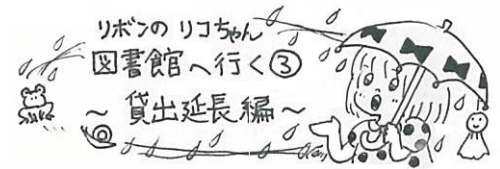 リボンの リコちゃん
図書館へ行く③
～ 貸出延長編 ～